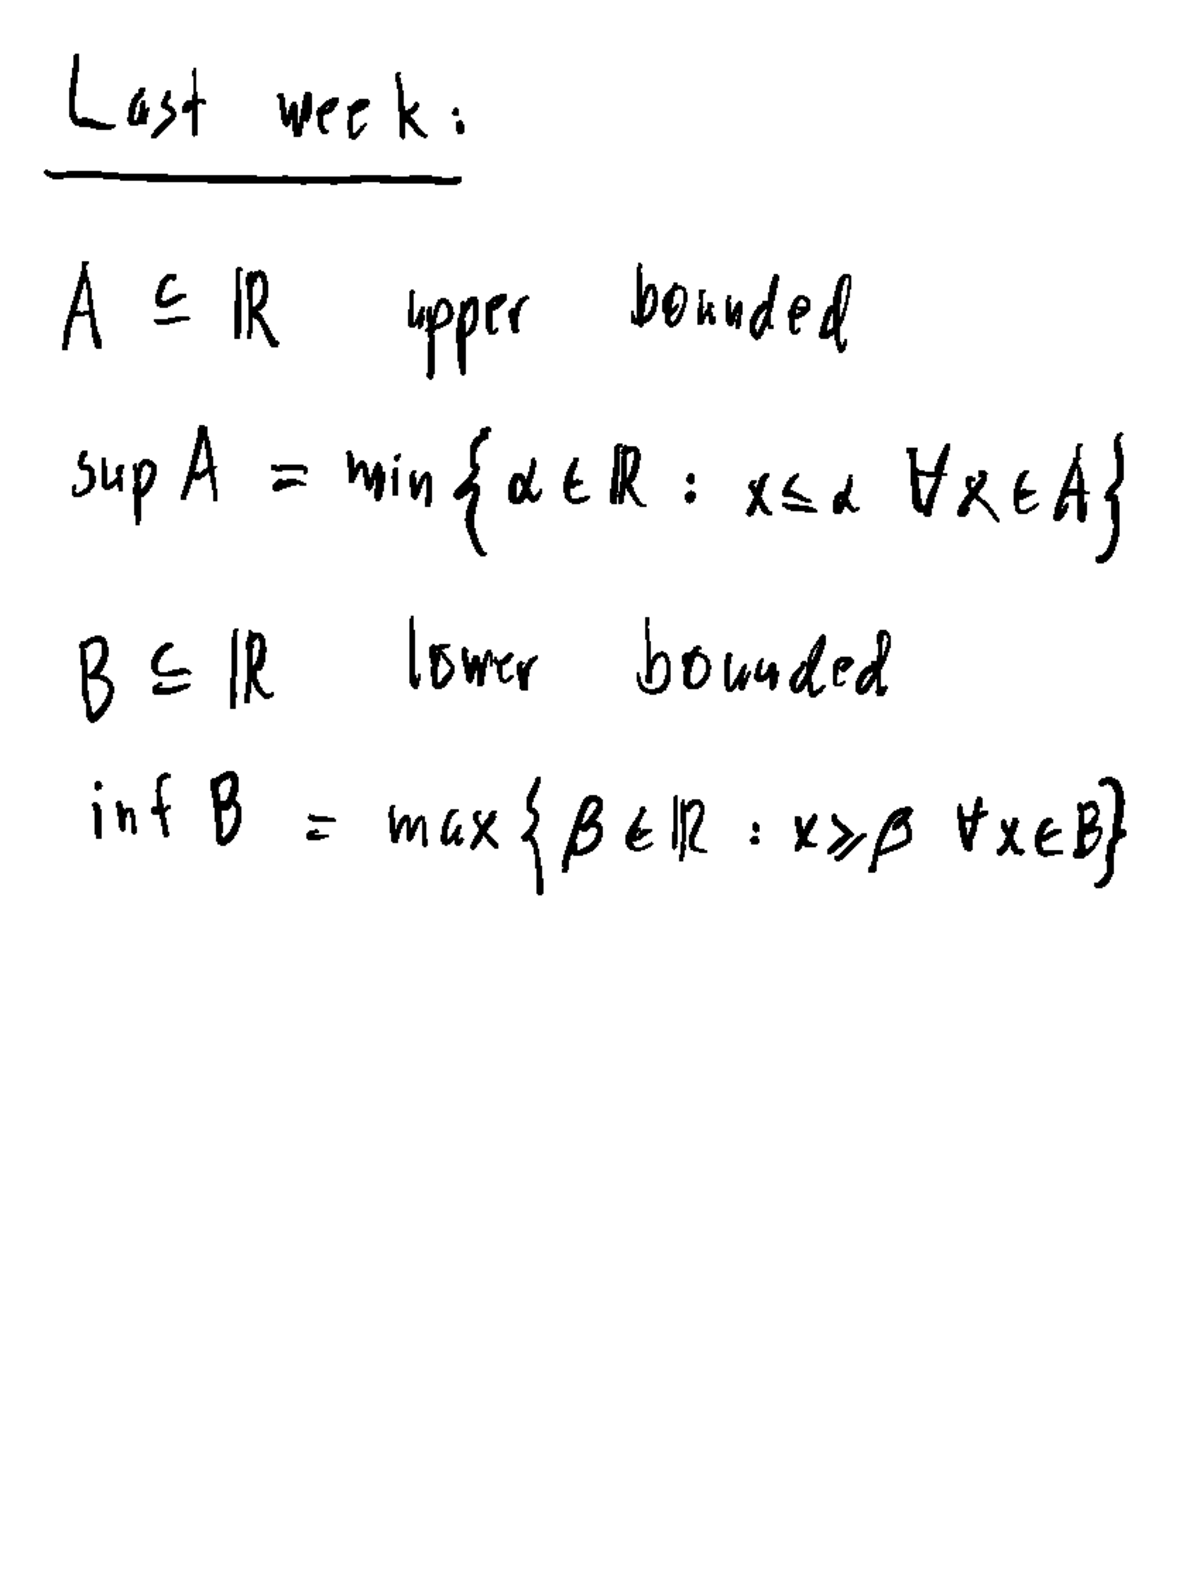 Last week:
A ⊆ ℝ upper bounded
sup A = min{α ∈ ℝ : x ≤ α ∀x ∈ A}
B ⊆ ℝ lower bounded
inf B = max{β ∈ ℝ : x ⩾ β ∀x ∈ B}